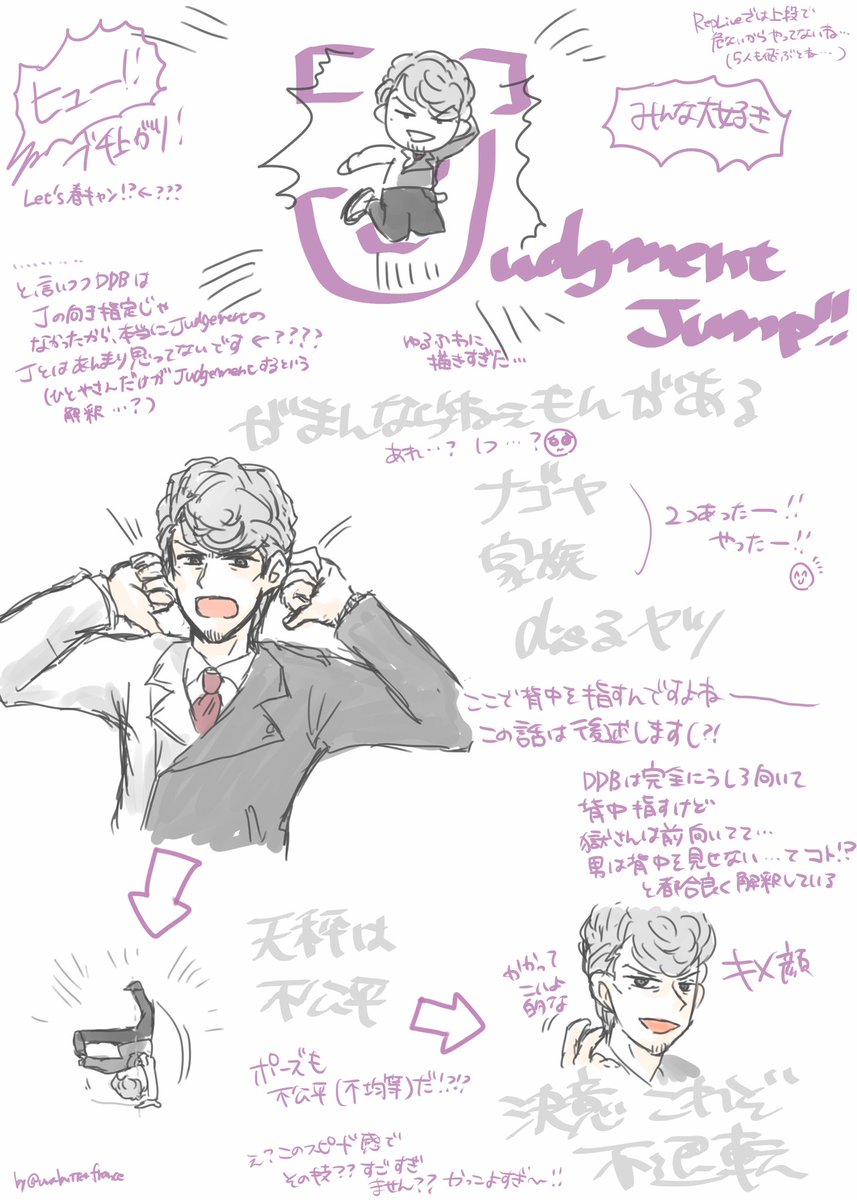 RepLiveでは上段で
危ないからやってないね…
(5人も飛ぶとね…)
ヒュー!!
ブチ上がり!
Let's春キャン!?←???
みんな大好き
Judgment
Jump!!
………
と、言いつつDDBは
Jの向き指定じゃ
なかったから、本当にJudgementの
Jとはあんまり思ってないです←????
(ひとやさんだけがJudgementするという
解釈…?)
ゆるふわに
描きすぎた…
がまんならねぇもんがある
あれ…?1つ…?
ナゴヤ
家族
disるヤツ
2つあったー!!
やったー!!
ここで背中を指すんですよね
この話は後述します(?!
DDBは完全にうしろ向いて
背中指すけど
獄さんは前向いてて…
男は背中を見せない…てコト!?
と都合良く解釈している
天秤は
不公平
ポーズも
不公平(不均等)だ!?!?
かかって
こいよ
的な
キメ顔
決意これぞ
不退転
え?このスピード感で
その技??すごすぎ
ません??かっこよすぎ〜!!